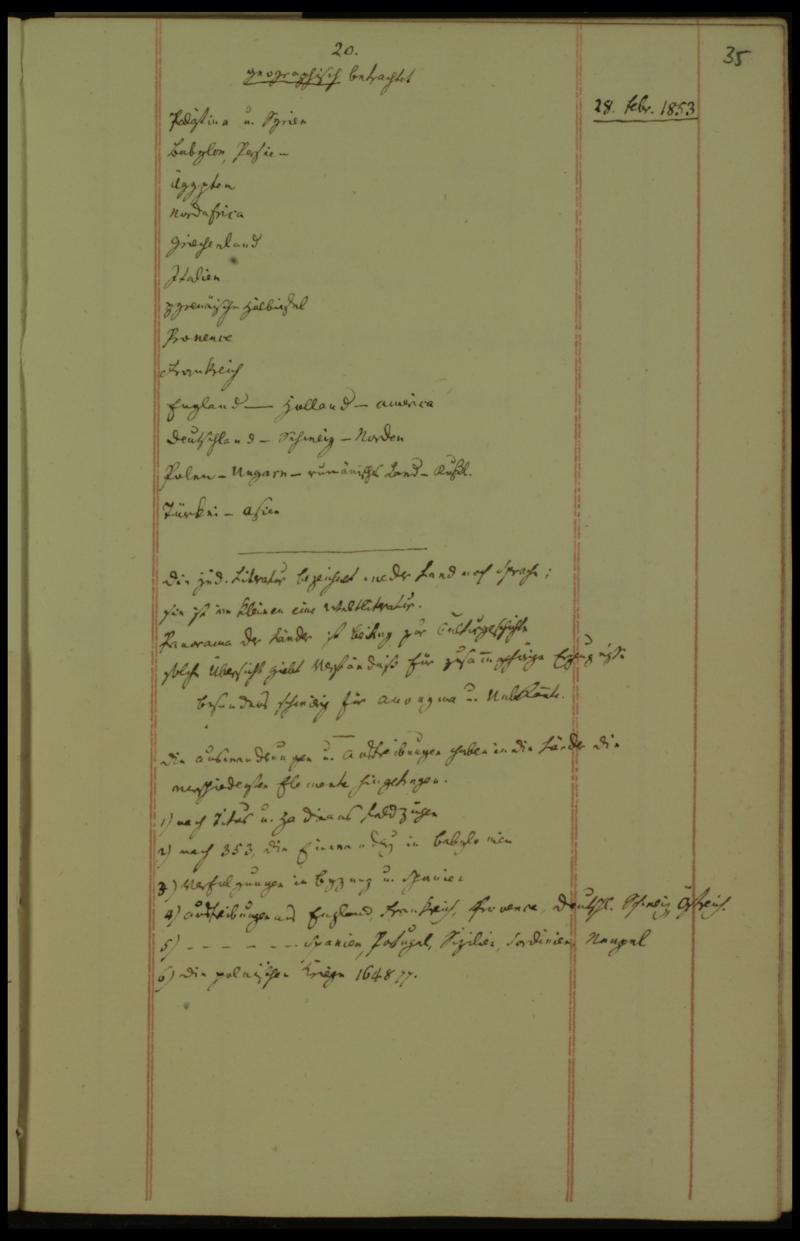 20.
35
geographisch betrachtet
28. Febr. 1853
Palästina u. Syrien
Babylon, Persien
Ägypten
Nordafrica
Griechenland
Italien
pyrenäische Halbinsel
Provence
Frankreich
England — Holland — America
Deutschland — Schweiz — Norden
Polen — Ungarn — rumänisches Land — Rußl.
Türkei — Asien
Die jüd. Literatur bezeichnet weder Land noch Sprache;
sie ist im Kleinen eine Weltliteratur.
Panorama der Länder ist Beitrag zur Culturgeschichte
solche Übersicht giebt Verständniß für zusammengehörige Erzeugnisse
besonders schwierig für Anonyma u. Unbekannte.
Die Auswanderungen u. Austreibungen haben in die Länder die
verschiedensten Elemente hingetragen.
1) nach Titus u. Hadrians Feldzügen
2) nach 353, die Einwand. in Babylonien
3) Verfolgungen in Byzanz u. Spanien
4) Austreibungen aus England, Frankreich, Provence, Deutschl. Schweiz, Östreich.
5) - - - - - - Spanien, Portugal, Sizilien, Sardinien, Neapel
6) die polnischen Kriege 1648 ff.